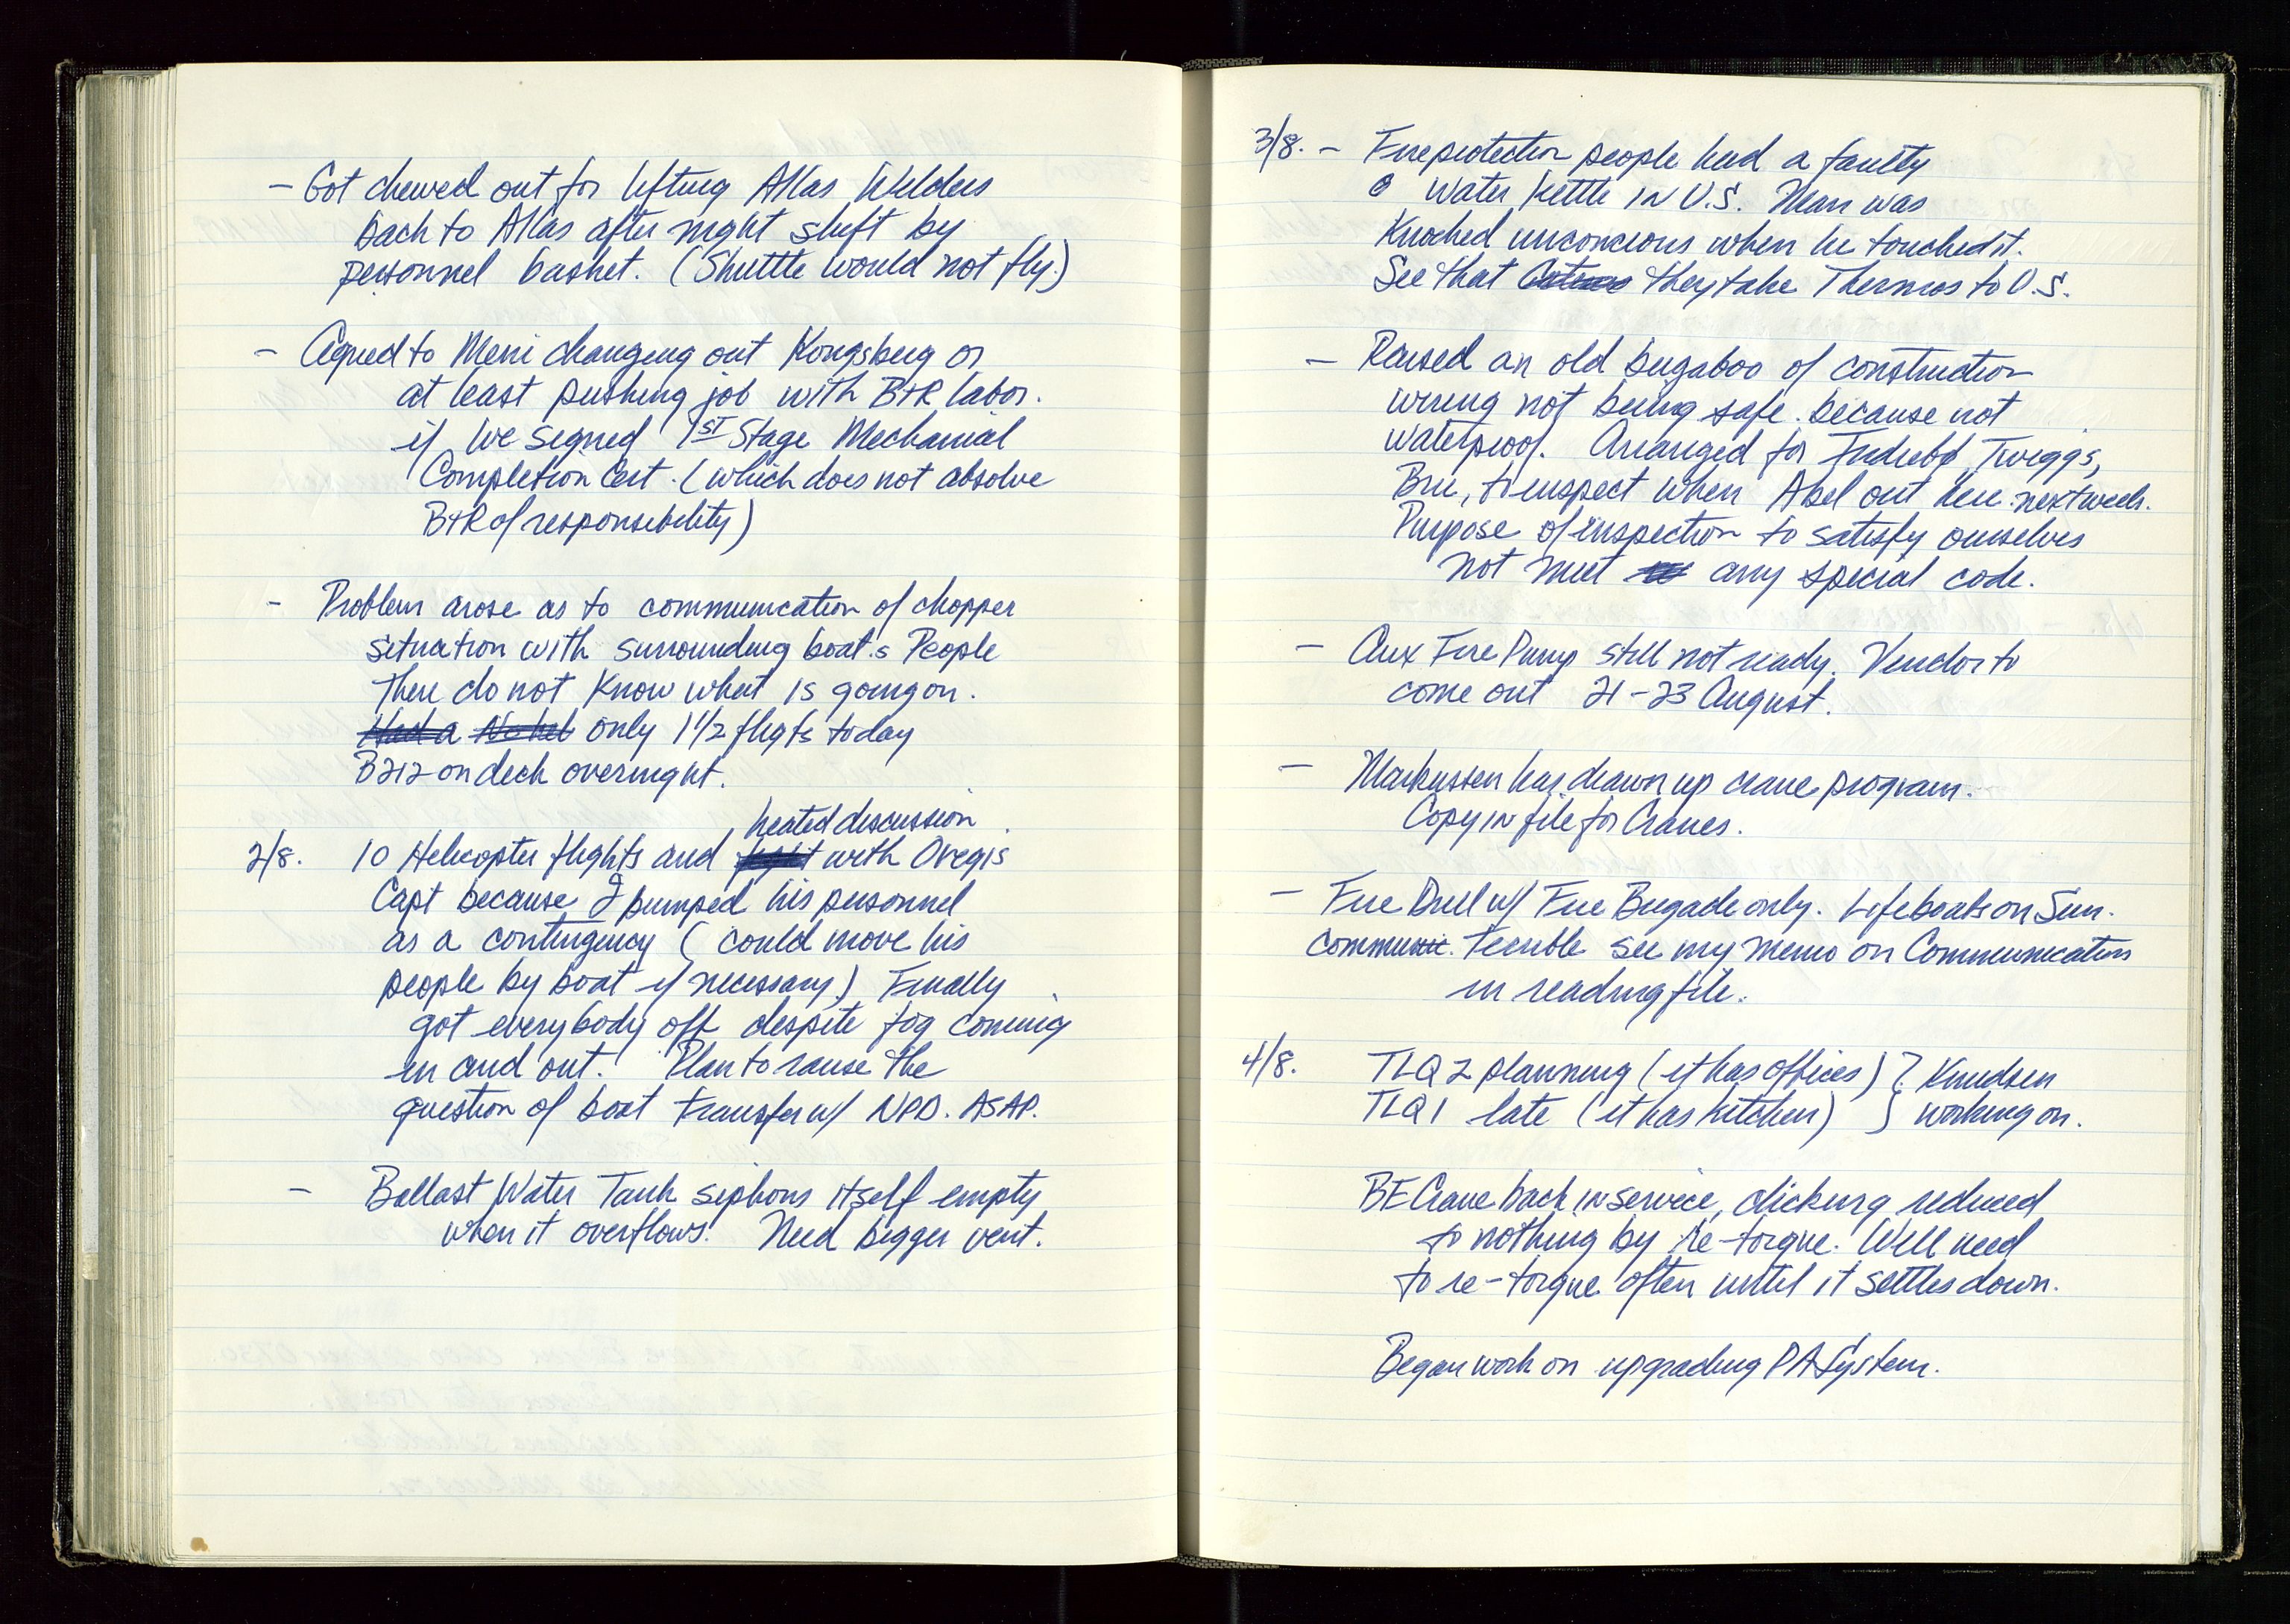 - Got chewed out for lifting Atlas Welders
back to Atlas after night shift by
personnel basket. (Shuttle would not fly.)
- Agreed to Meni changing out Kongsberg or
at least pushing job with B+R labor.
if we signed 1ST Stage Mechanial
Completion Cert. (which does not absolve
B+R of responsibility)
- Problem arose as to communication of chopper
situation with surrounding boats People
there do not know what is going on.
Had a No hel only 1 1/2 fligts today
B212 on deck overnight.
heated discussion
2/8. 10 Helicopter flights and fight with Oregis
Capt because I bumped his personnel
as a contingency (could move his
people by boat if necessary) Finally
got everybody off despite fog coming
in and out. Plan to raise the
question of boat transfer w/ NPD. ASAP.
- Ballast Water Tank siphons itself empty
when it overflows. Need bigger vent.
3/8. - Fireprotection people had a faulty
Water Kettle in U.S. Man was
Knocked unconcious when he touched it.
See that they take Thermos to U.S.
- Raised an old bugaboo of construction
wiring not being safe because not
waterproof. Arranged for Indrebø, Twiggs,
Bru, to inspect when Abel out here next week.
Purpose of inspection to satisfy ourselves
not meet any special code.
- Aux Fire Pump still not ready. Vendor to
come out 21-23 August.
- Markussen has drawn up crane program.
Copy in file for Cranes.
- Fire Drill w/ Fire Brigade only. Lifeboats on Sun.
communic. Terrible see my memo on Communication
in reading file.
4/8. TLQ 2 planning (it has offices) } Knudsen
TLQ 1 late (it has kitchen) } working on.
BE Crane back in service, clicking reduced
to nothing by re-torque. Will need
to re-torque often until it settles down.
Began work on upgrading PA System.